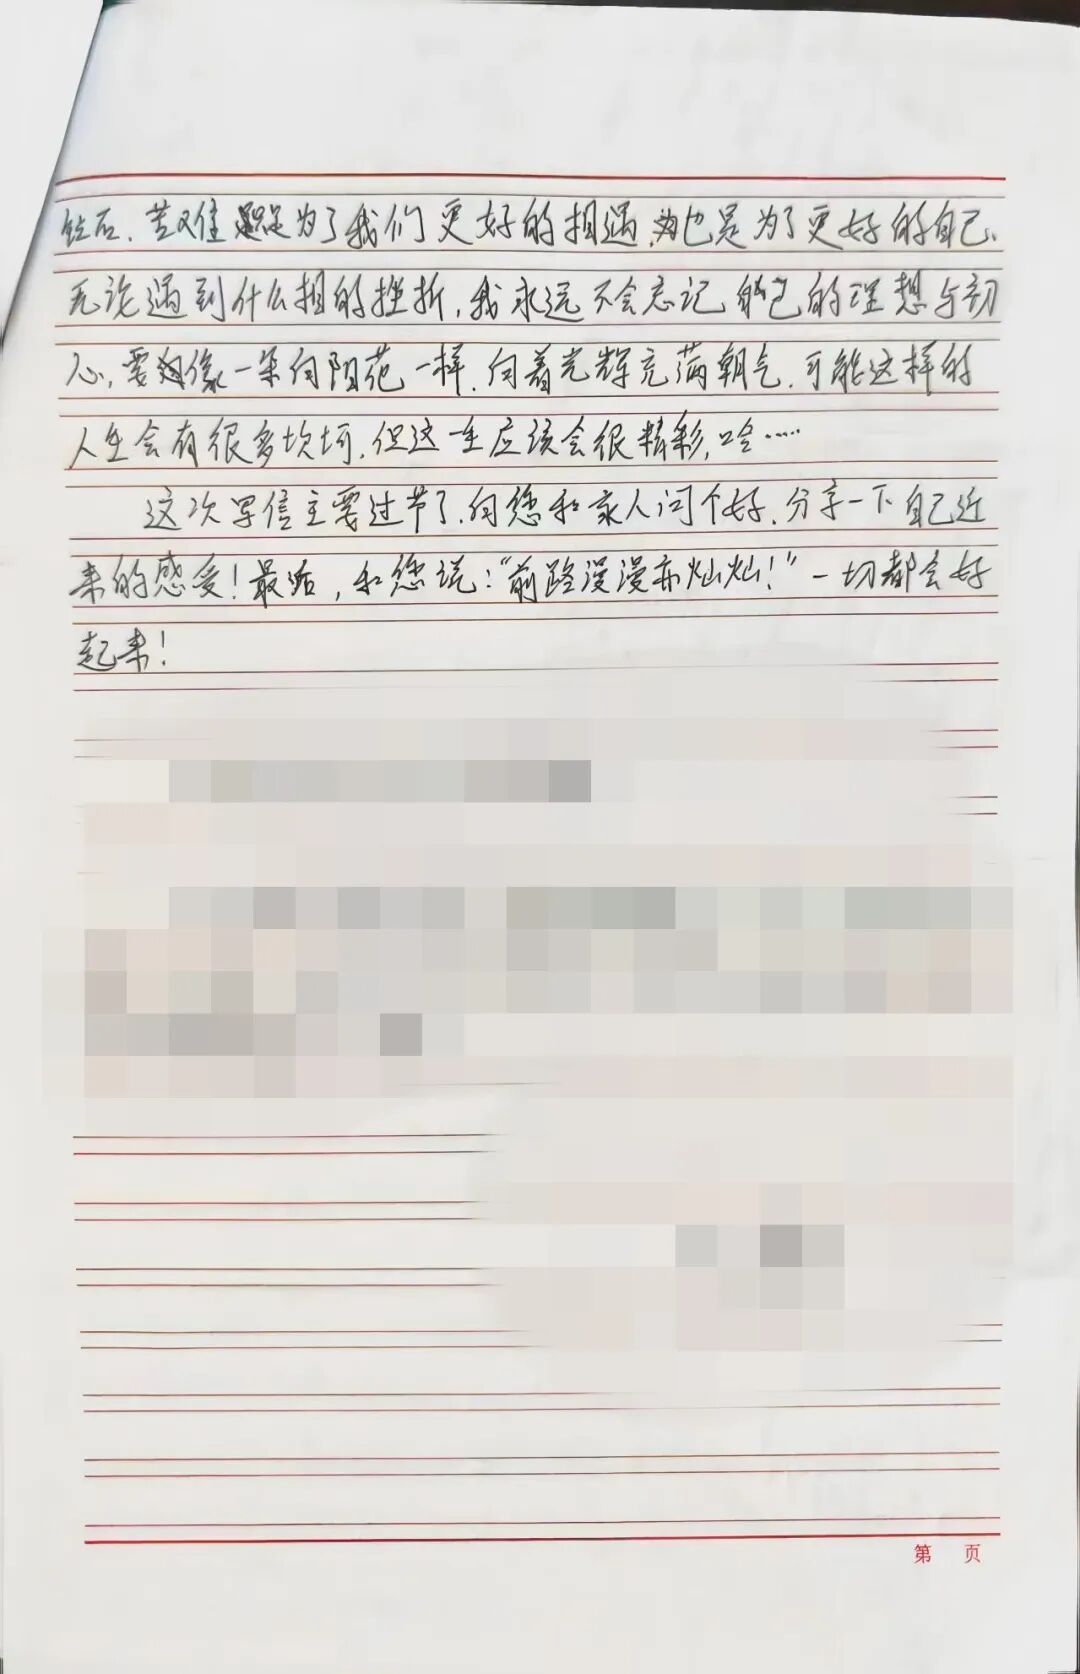 钻石，苦难是为了我们更好的相遇，也是为了更好的自己、
无论遇到什么样的挫折，我永远不会忘记自己的理想与初
心，要像一朵向阳花一样，向着光辉充满朝气，可能这样的
人生会有很多坎坷，但这一生应该会很精彩，哈……
这次写信主要过节了，向您和家人问个好，分享一下自己近
来的感受！最后，和您说：“前路漫漫亦灿灿！”一切都会好
起来！
第 页